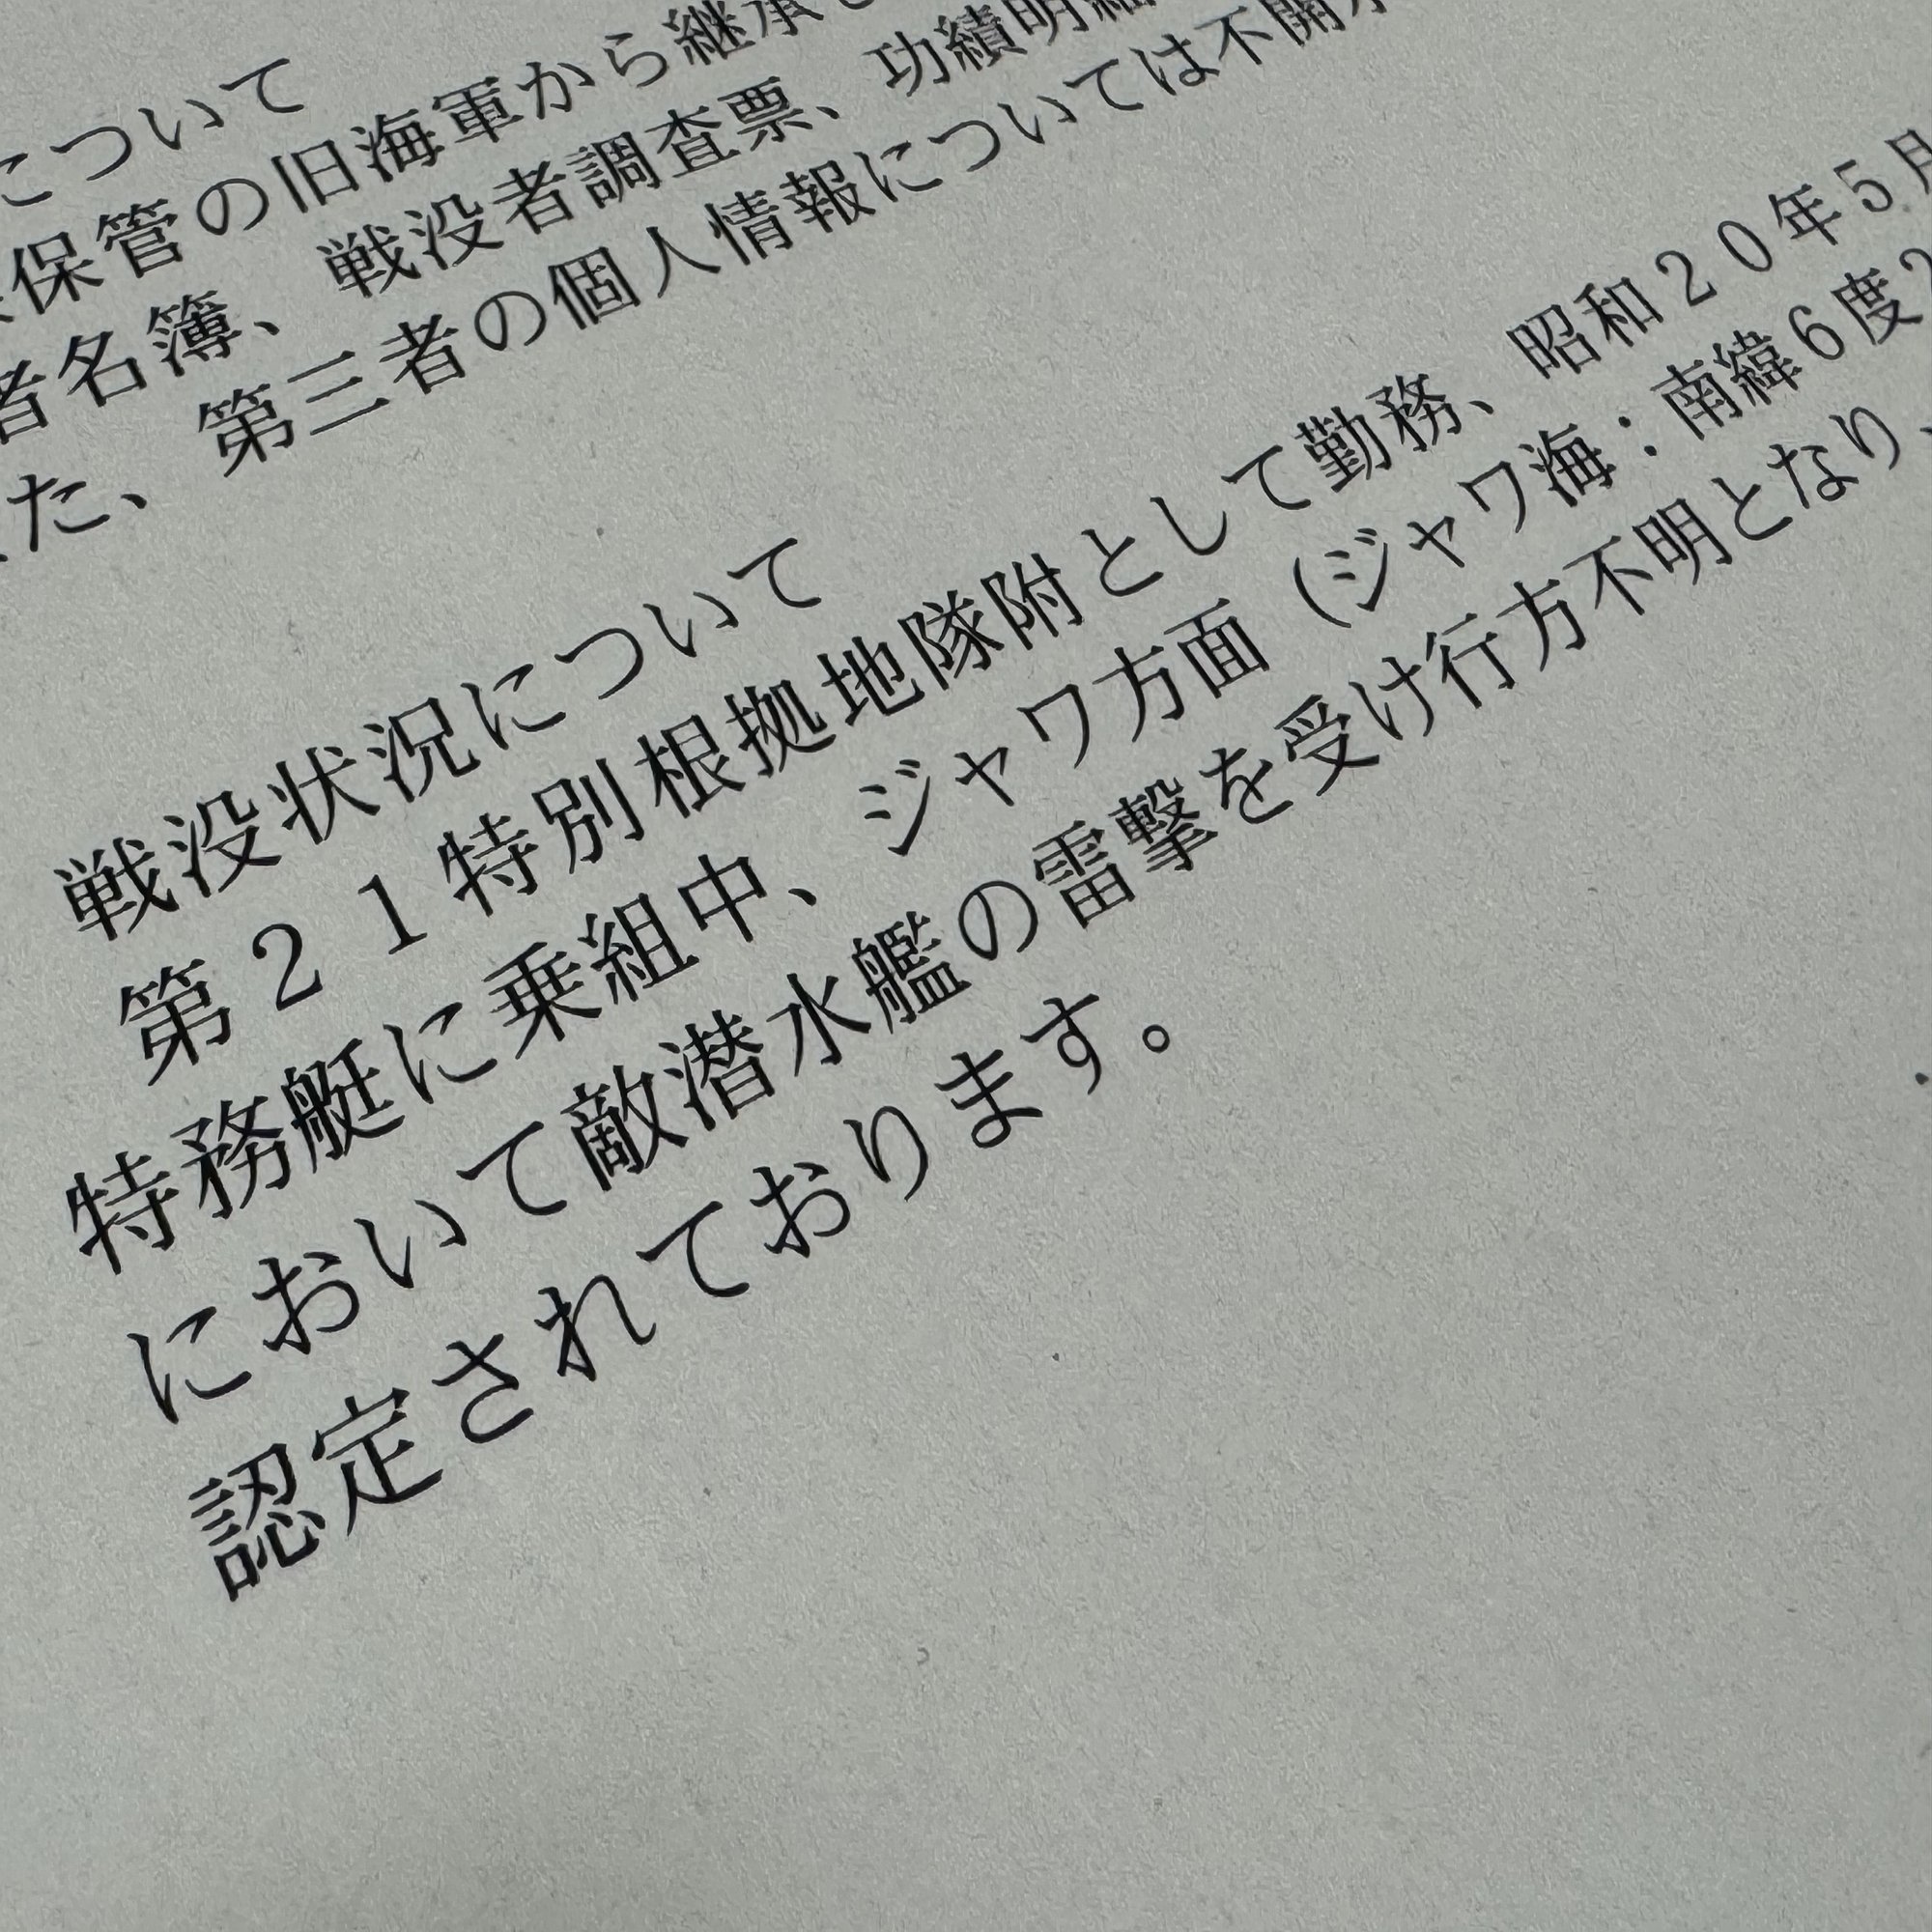 について
保管の旧海軍から継承
者名簿、戦没者調査票、功績明細
た、第三者の個人情報については不開示
戦没状況について
第２１特別根拠地隊附として勤務、昭和２０年５月
特務艇に乗組中、ジャワ方面（ジャワ海：南緯６度２
において敵潜水艦の雷撃を受け行方不明となり、
認定されております。